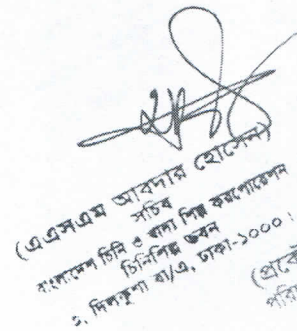 (এএসএম আবদার হোসেন)
সচিব
বাংলাদেশ চিনি ও খাদ্য শিল্প করপোরেশন
চিনিশিল্প ভবন
৩, দিলকুশা বা/এ, ঢাকা-১০০০।
(প্রকৌ
পরি